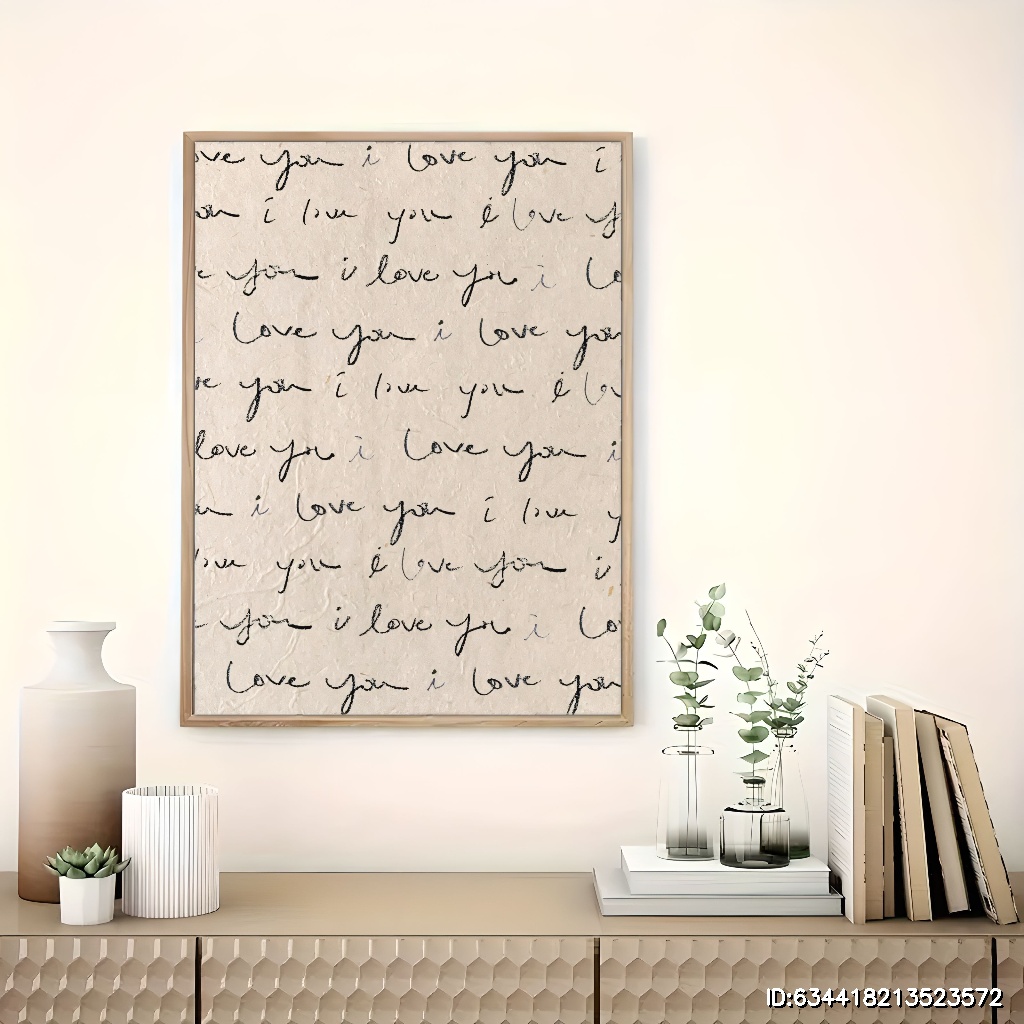 ove you i love you i
ou i love you i love y
e you i love you i lo
love you i love you
ve you i love you i lov
love you i love you i
u i love you i love y
love you i love you i
you i love you i lo
love you i love you
ID:634418213523572